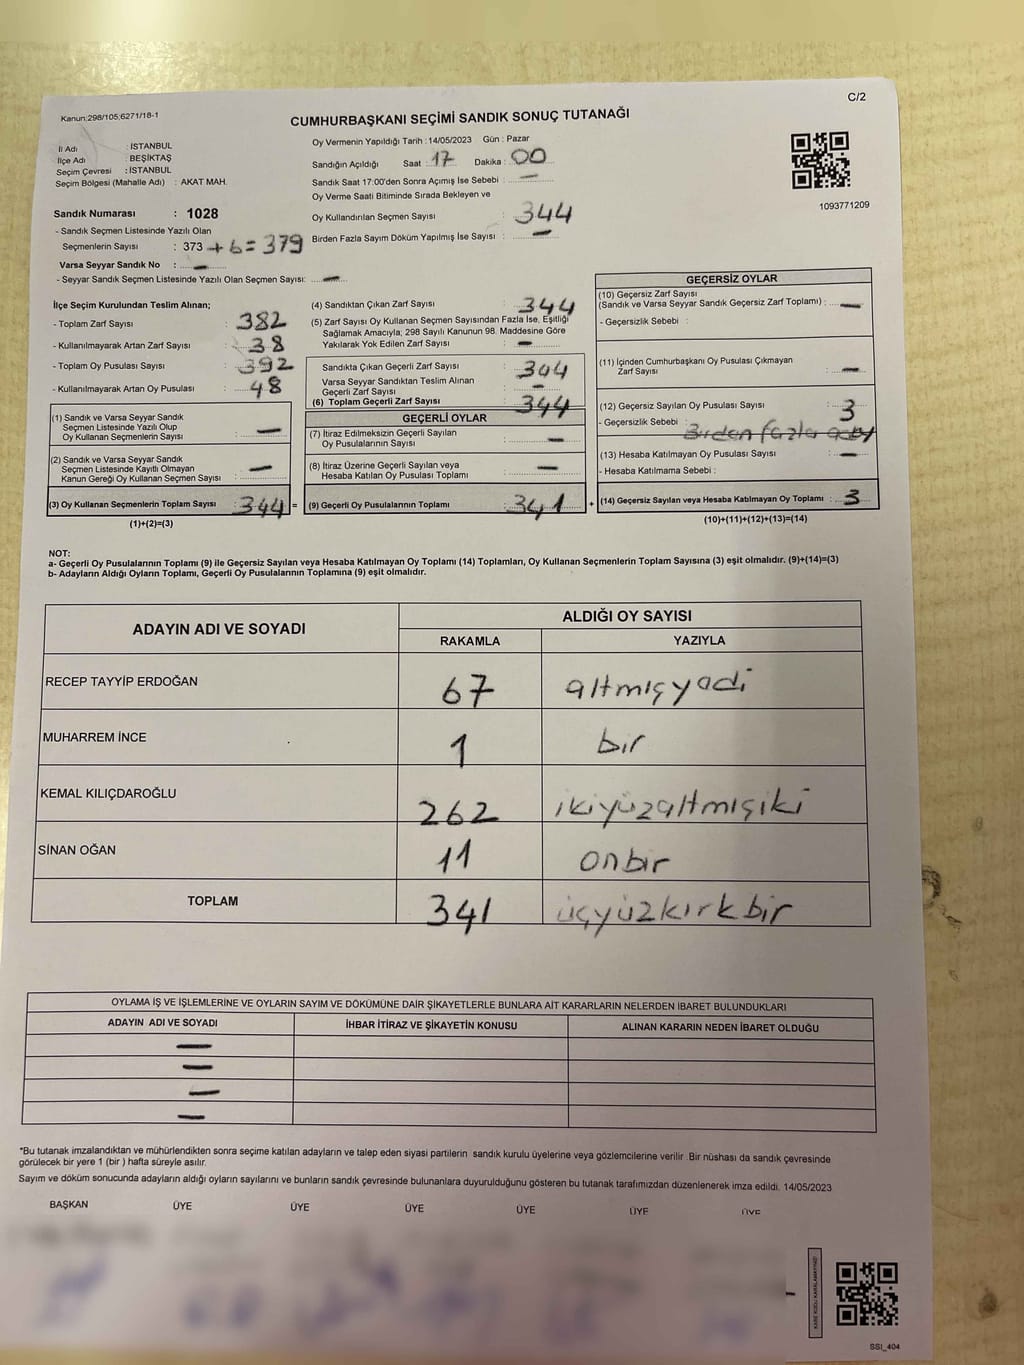 C/2
Kanun:298/105;6271/18-1
CUMHURBAŞKANI SEÇİMİ SANDIK SONUÇ TUTANAĞI
İl Adı : İSTANBUL
İlçe Adı : BEŞİKTAŞ
Seçim Çevresi : İSTANBUL
Seçim Bölgesi (Mahalle Adı) : AKAT MAH.
Oy Vermenin Yapıldığı Tarih : 14/05/2023 Gün : Pazar
Sandığın Açıldığı Saat : 17 Dakika : 00
Sandık Saat 17:00'den Sonra Açımış İse Sebebi : —
Oy Verme Saati Bitiminde Sırada Bekleyen ve
Oy Kullandırılan Seçmen Sayısı : 344
Birden Fazla Sayım Döküm Yapılmış İse Sayısı : —
1093771209
Sandık Numarası : 1028
- Sandık Seçmen Listesinde Yazılı Olan
Seçmenlerin Sayısı : 373 + 6 = 379
Varsa Seyyar Sandık No : —
- Seyyar Sandık Seçmen Listesinde Yazılı Olan Seçmen Sayısı: —
İlçe Seçim Kurulundan Teslim Alınan;
- Toplam Zarf Sayısı : 382
- Kullanılmayarak Artan Zarf Sayısı : 38
- Toplam Oy Pusulası Sayısı : 392
- Kullanılmayarak Artan Oy Pusulası : 48
(1) Sandık ve Varsa Seyyar Sandık
Seçmen Listesinde Yazılı Olup
Oy Kullanan Seçmenlerin Sayısı : —
(2) Sandık ve Varsa Seyyar Sandık
Seçmen Listesinde Kayıtlı Olmayan
Kanun Gereği Oy Kullanan Seçmen Sayısı : —
(3) Oy Kullanan Seçmenlerin Toplam Sayısı : 344 =
(1)+(2)=(3)
(4) Sandıktan Çıkan Zarf Sayısı : 344
(5) Zarf Sayısı Oy Kullanan Seçmen Sayısından Fazla İse, Eşitliği
Sağlamak Amacıyla; 298 Sayılı Kanunun 98. Maddesine Göre
Yakılarak Yok Edilen Zarf Sayısı : —
Sandıkta Çıkan Geçerli Zarf Sayısı : 344
Varsa Seyyar Sandıktan Teslim Alınan
Geçerli Zarf Sayısı : —
(6) Toplam Geçerli Zarf Sayısı : 344
GEÇERLİ OYLAR
(7) İtiraz Edilmeksizin Geçerli Sayılan
Oy Pusulalarının Sayısı : —
(8) İtiraz Üzerine Geçerli Sayılan veya
Hesaba Katılan Oy Pusulası Toplamı : —
(9) Geçerli Oy Pusulalarının Toplamı : 341 +
GEÇERSİZ OYLAR
(10) Geçersiz Zarf Sayısı
(Sandık ve Varsa Seyyar Sandık Geçersiz Zarf Toplamı) : —
- Geçersizlik Sebebi :
(11) İçinden Cumhurbaşkanı Oy Pusulası Çıkmayan
Zarf Sayısı : —
(12) Geçersiz Sayılan Oy Pusulası Sayısı : 3
- Geçersizlik Sebebi : Birden fazla aday
(13) Hesaba Katılmayan Oy Pusulası Sayısı : —
- Hesaba Katılmama Sebebi :
(14) Geçersiz Sayılan veya Hesaba Katılmayan Oy Toplamı : 3
(10)+(11)+(12)+(13)=(14)
NOT:
a- Geçerli Oy Pusulalarının Toplamı (9) ile Geçersiz Sayılan veya Hesaba Katılmayan Oy Toplamı (14) Toplamları, Oy Kullanan Seçmenlerin Toplam Sayısına (3) eşit olmalıdır. (9)+(14)=(3)
b- Adayların Aldığı Oyların Toplamı, Geçerli Oy Pusulalarının Toplamına (9) eşit olmalıdır.
ADAYIN ADI VE SOYADI ALDIĞI OY SAYISI
RAKAMLA YAZIYLA
RECEP TAYYİP ERDOĞAN 67 altmışyadi
MUHARREM İNCE 1 bir
KEMAL KILIÇDAROĞLU 262 ikiyüzaltmışiki
SİNAN OĞAN 11 onbir
TOPLAM 341 üçyüzkırkbir
OYLAMA İŞ VE İŞLEMLERİNE VE OYLARIN SAYIM VE DÖKÜMÜNE DAİR ŞİKAYETLERLE BUNLARA AİT KARARLARIN NELERDEN İBARET BULUNDUKLARI
ADAYIN ADI VE SOYADI İHBAR İTİRAZ VE ŞİKAYETİN KONUSU ALINAN KARARIN NEDEN İBARET OLDUĞU
—
—
—
—
*Bu tutanak imzalandıktan ve mühürlendikten sonra seçime katılan adayların ve talep eden siyasi partilerin sandık kurulu üyelerine veya gözlemcilerine verilir. Bir nüshası da sandık çevresinde
görülecek bir yere 1 (bir) hafta süreyle asılır.
Sayım ve döküm sonucunda adayların aldığı oyların sayılarını ve bunların sandık çevresinde bulunanlara duyurulduğunu gösteren bu tutanak tarafımızdan düzenlenerek imza edildi. 14/05/2023
BAŞKAN ÜYE ÜYE ÜYE ÜYE ÜYE ÜYE
KARE KODU KARALAMAYINIZ!
SSI_404